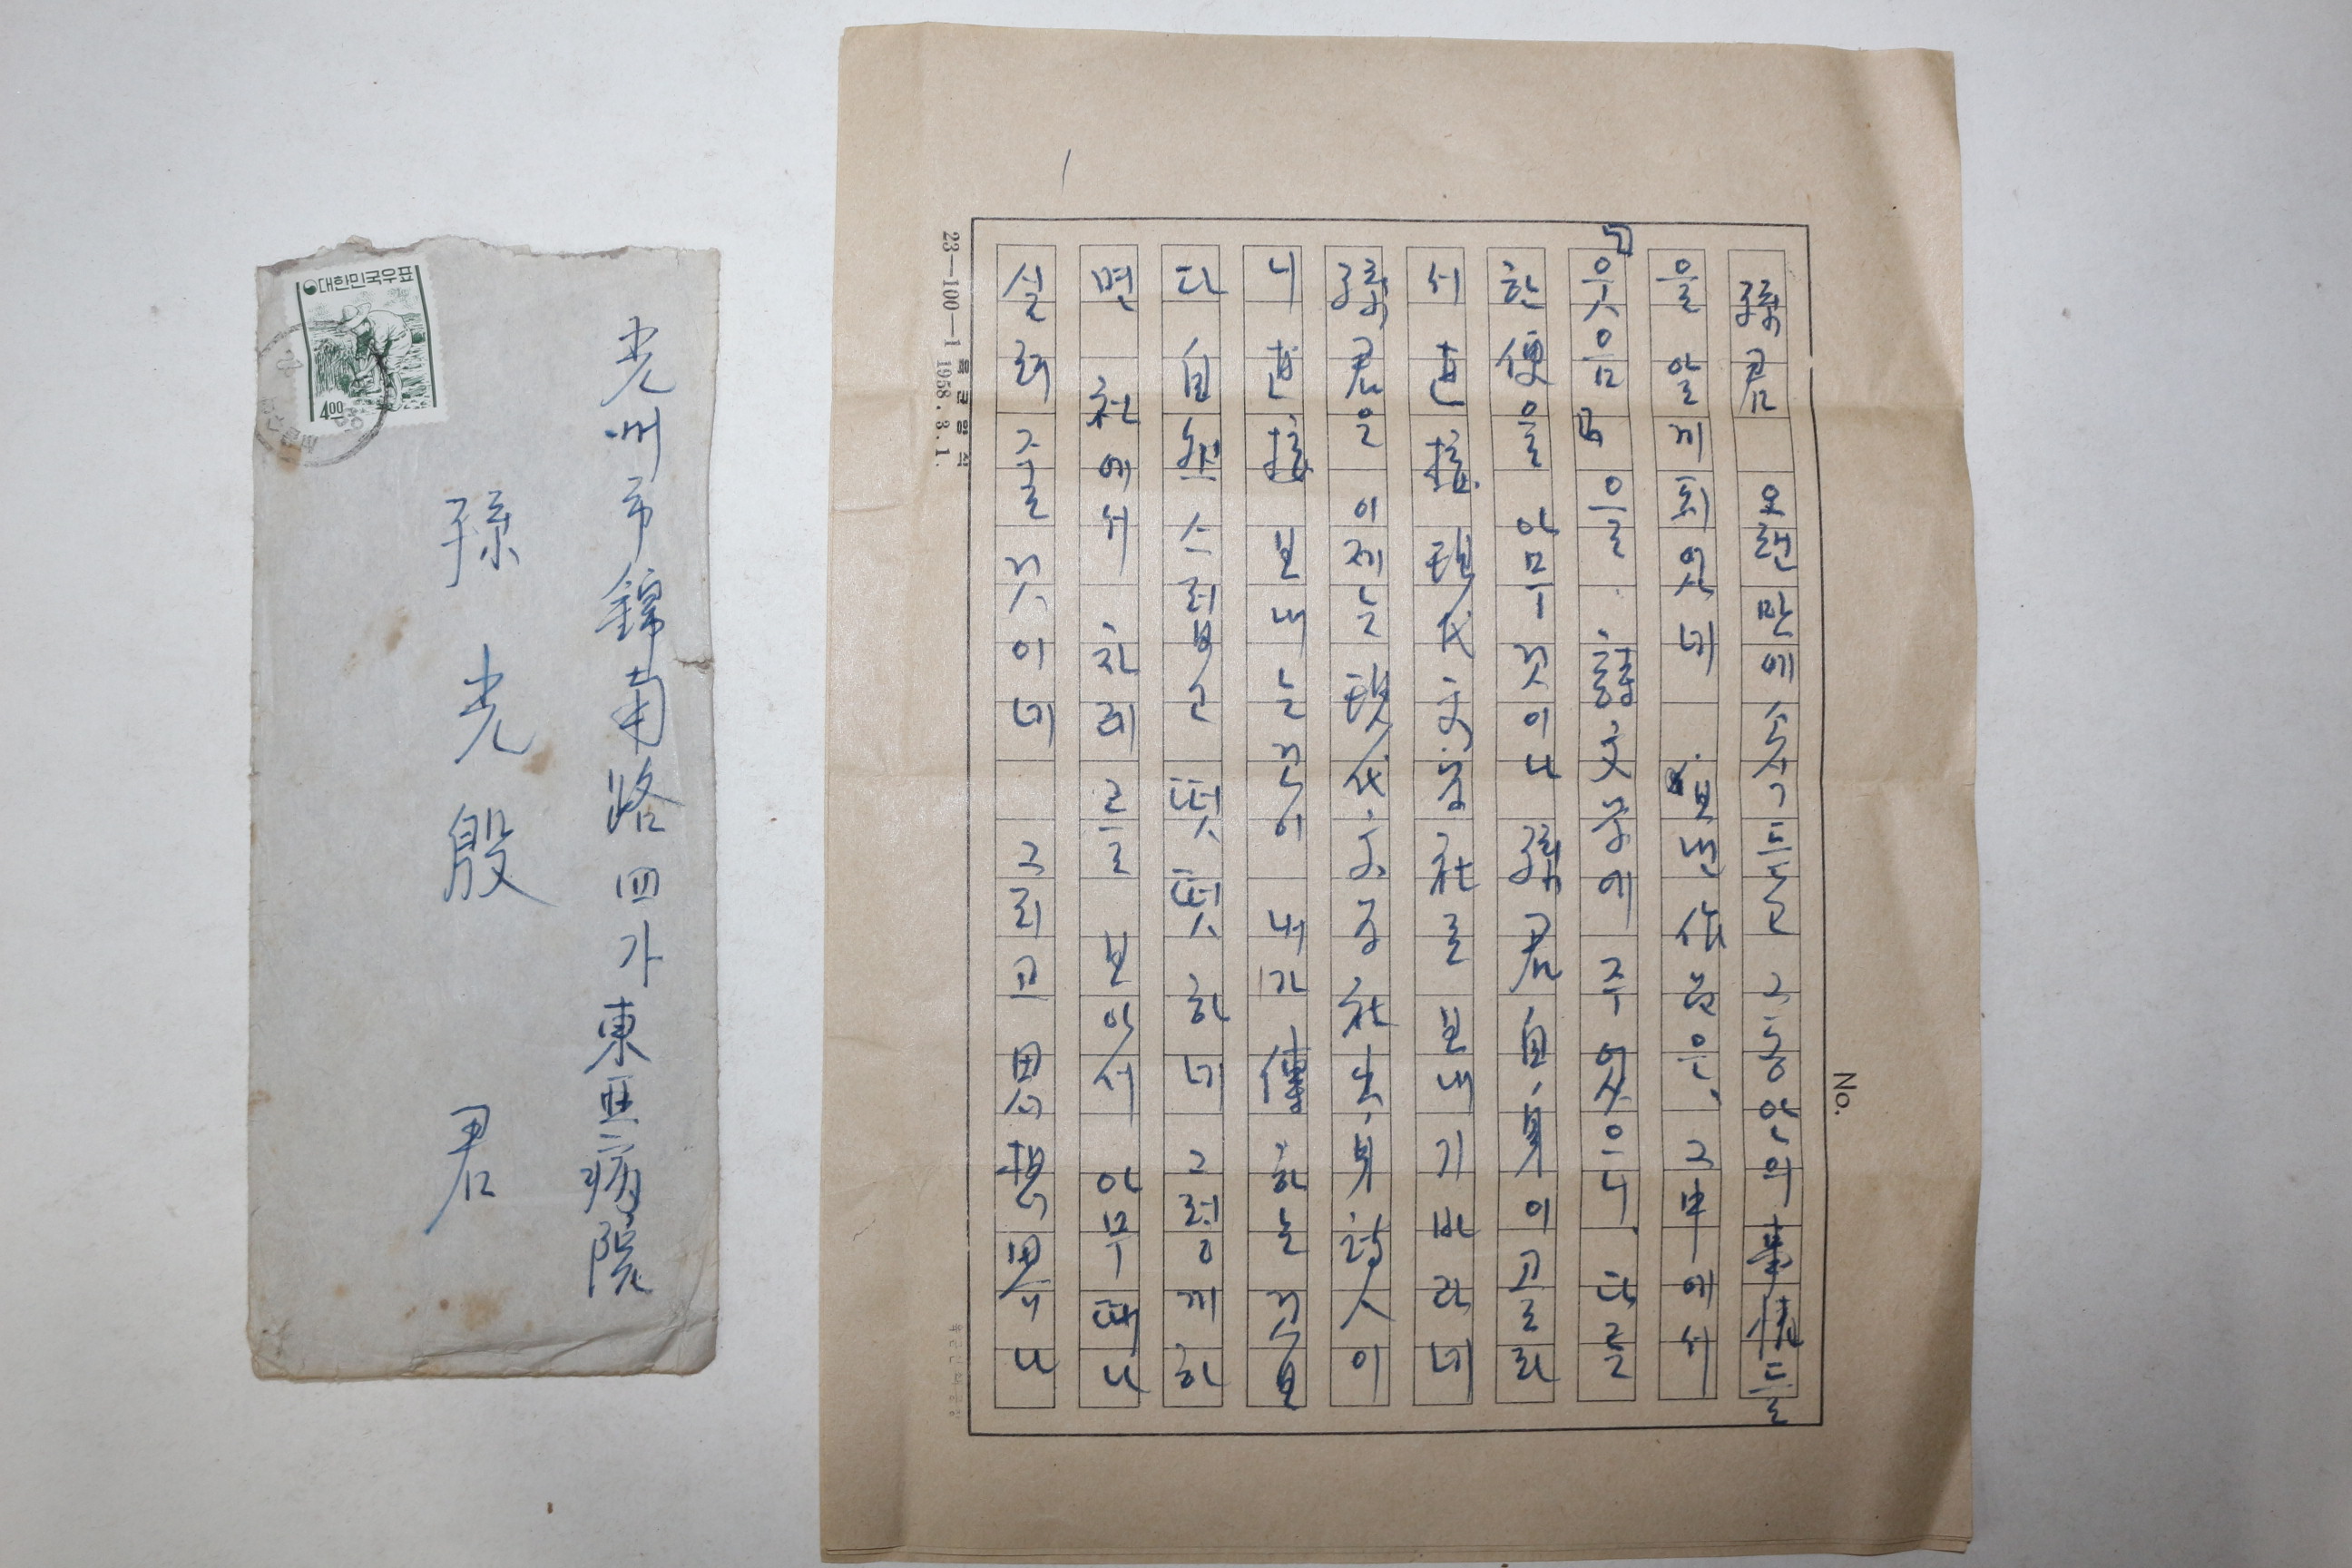 대한민국우표
4.00
光州市錦南路四가東亞病院
孫光殷 君
No.
孫君 오랜만에 소식 듣고 그동안의 事情들
을 알게 되었네 보낸 作品은, 그 中에서
「웃음」을 詩文學에 주었으니. 다른
한便을 아무것이나 孫君 自身이 골라
서 直接 現代文學社로 보내기 바라네
孫君은 이제는 現代文學社出身詩人이
니 直接 보내는것이 내가 傳하는 것보
다 自然스러웁고 떳떳하네 그렇게 하
면 에서 차례 보아서 아무때나
실려줄것이네 그리고 思想界나
23—100—1 1958.3.1.